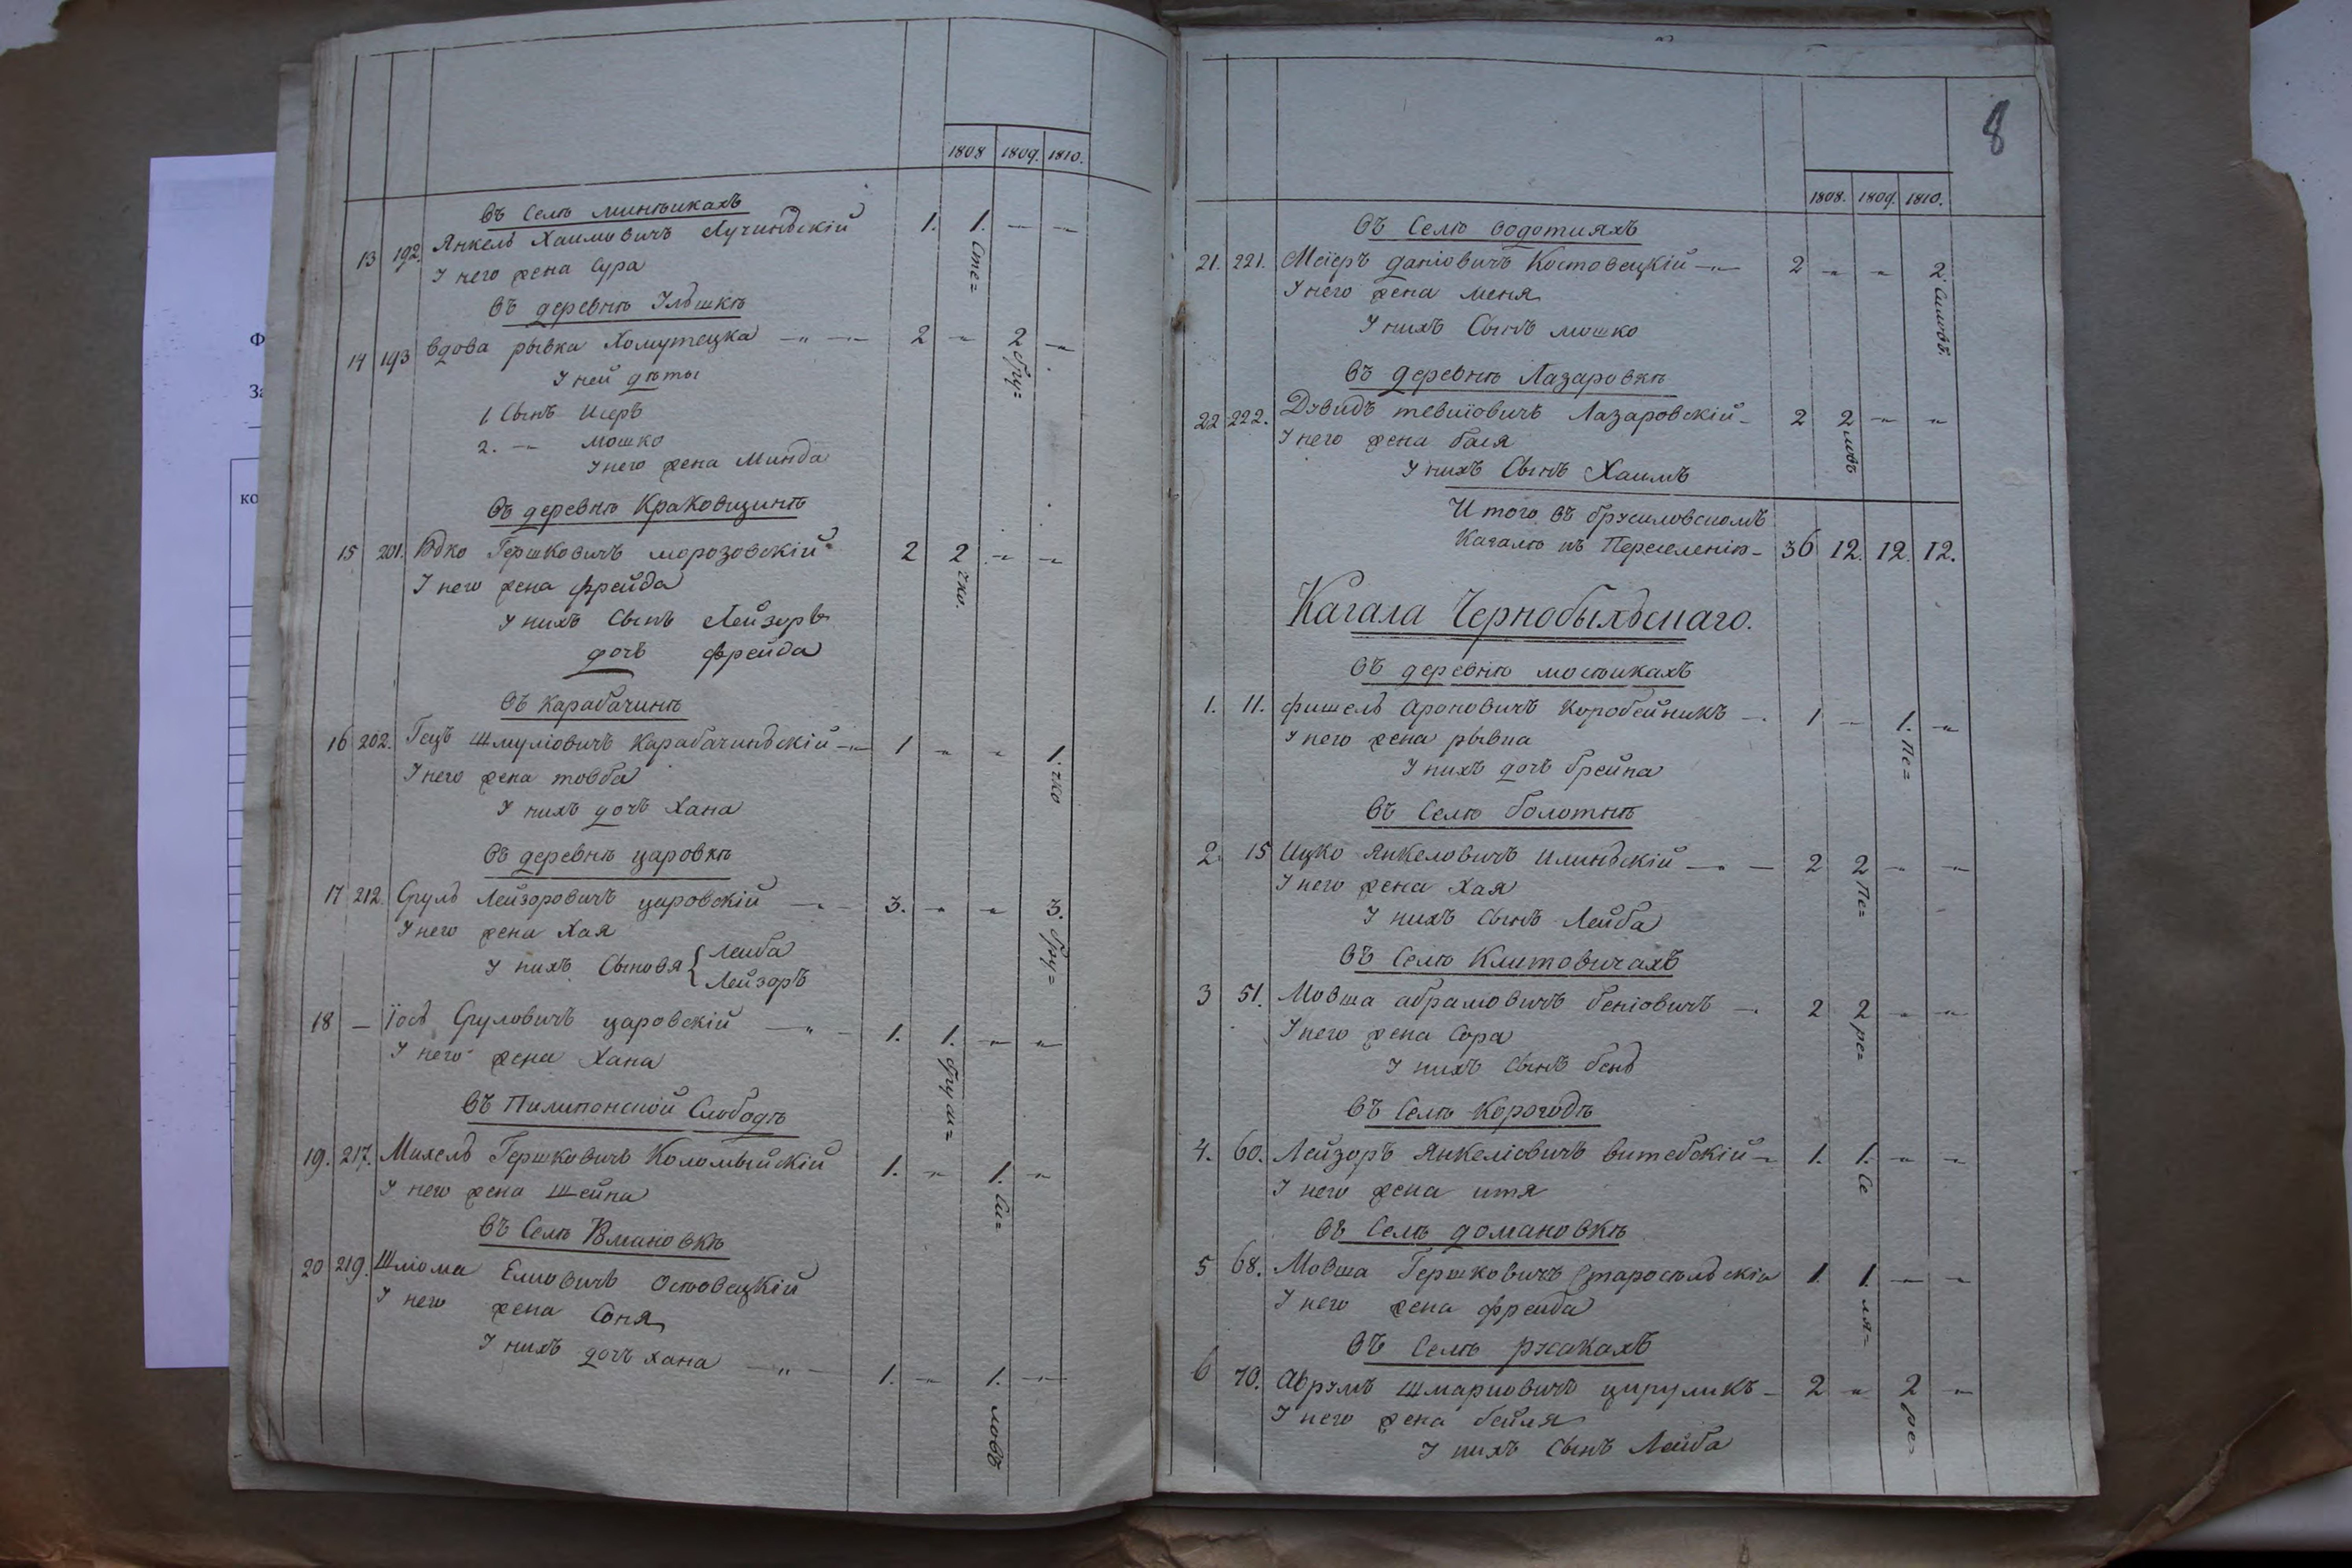 1808 1809. 1810.
въ Селѣ минѣикахъ
13 192. Янкель Хаимовичъ Лучинскій 1. 1. — —
У него жена Сура
въ деревнѣ Ульшкѣ
14 193 вдова рывка Хомутецка — 2 — 2 —
У ней дѣты
1. Сынъ Исеръ
2. — мошко
У него жена Минда
въ деревнѣ Краковщинѣ
15 201. Юдко Гершковичъ морозовскій 2 2 — —
У него жена фрейда
У нихъ Сынъ Лейзоръ
дочь фрейда
въ Карабачинѣ
16 202. Гецъ Шмуліовичъ Карабачинскій — 1 — — 1.
У него жена товба
У нихъ дочь Хана
въ деревнѣ царовкѣ
17 212. Сруль Лейзоровичъ царовскій — 3. — — 3.
У него жена Хая
У нихъ Сыновя { Леиба
Лейзоръ
18 — Іось Сруловичъ царовскій — 1. 1. — —
У него жена Хана
въ Пилипонской Слободѣ
19. 217. Михель Гершковичъ Коломыйскій 1. — 1. —
У него жена Шейна
въ Селѣ Юмановкѣ
20 219. Шліома Елиовичъ Осовецкій
У него жена Соня
У нихъ дочь хана — 1. — 1. —
8
1808. 1809. 1810.
въ Селѣ водотияхъ
21. 221. Меіеръ даніовичъ Костовецкій — 2 — — 2
У него жена меня
У нихъ Сынъ мошко
въ деревнѣ Лазаровкѣ
22 222. Дувидъ тевиіовичъ Лазаровскій — 2 2 — —
У него жена бася
У нихъ Сынъ Хаимъ
Итого въ брусиловскомъ
Кагалѣ къ Переселенію — 36 12. 12. 12.
Кагала Чернобыльскаго.
въ деревнѣ мосѣикахъ
1. 11. фишель ароновичъ коробейникъ — 1 — 1. —
У него жена рывка
У нихъ дочь брейна
въ Селѣ болотнѣ
2. 15 Ицко Янкеловичъ илинскій — 2 2 — —
У него жена Хая
У нихъ Сынъ Лейба
въ Селѣ Клитовичахъ
3 51. Мовша абрамовичъ беніовичъ — 2 2 — —
У него жена Сора
У нихъ Сынъ бень
въ Селѣ Корогодѣ
4. 60. Лейзоръ Янкеліовичъ витебскій — 1. 1. — —
У него жена итя
въ Селѣ домановкѣ
5 68. Мовша Гершковичъ Старосѣльскій 1. 1. — —
У него жена фреида
въ Селѣ ржакахъ
6 70. Абрумъ Шмариовичъ цируликъ — 2 — 2 —
У него жена бейля
У нихъ Сынъ Лейба